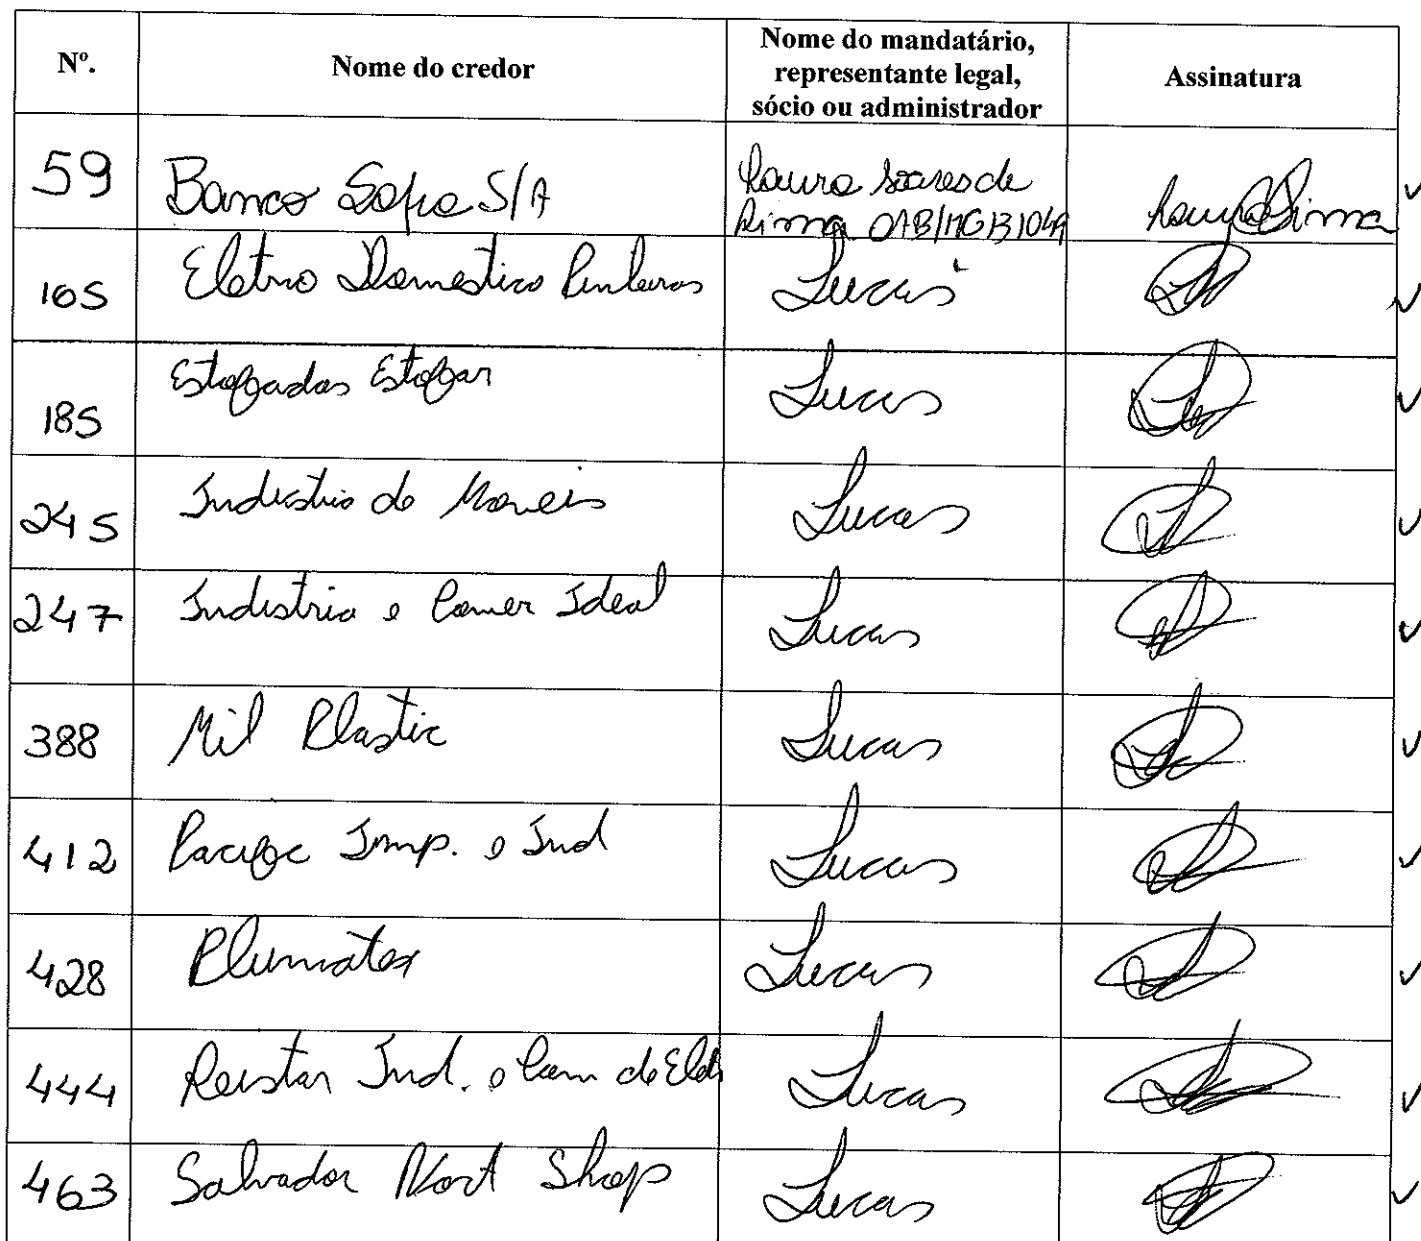 Nº. Nome do credor Nome do mandatário, representante legal, sócio ou administrador Assinatura
59 Banco Safra S/A Laura Soares de
Lima OAB/MG 131049 Laura Lima
165 Eletro Domestico Lucas
185 Estofados Estofar Lucas
245 Industria de Moveis Lucas
247 Industria e Comer Ideal Lucas
388 Mil Plastic Lucas
412 Pacific Imp. e Ind Lucas
428 Plumatex Lucas
444 Ind. e Com de Lucas
463 Salvador Nort Shop Lucas